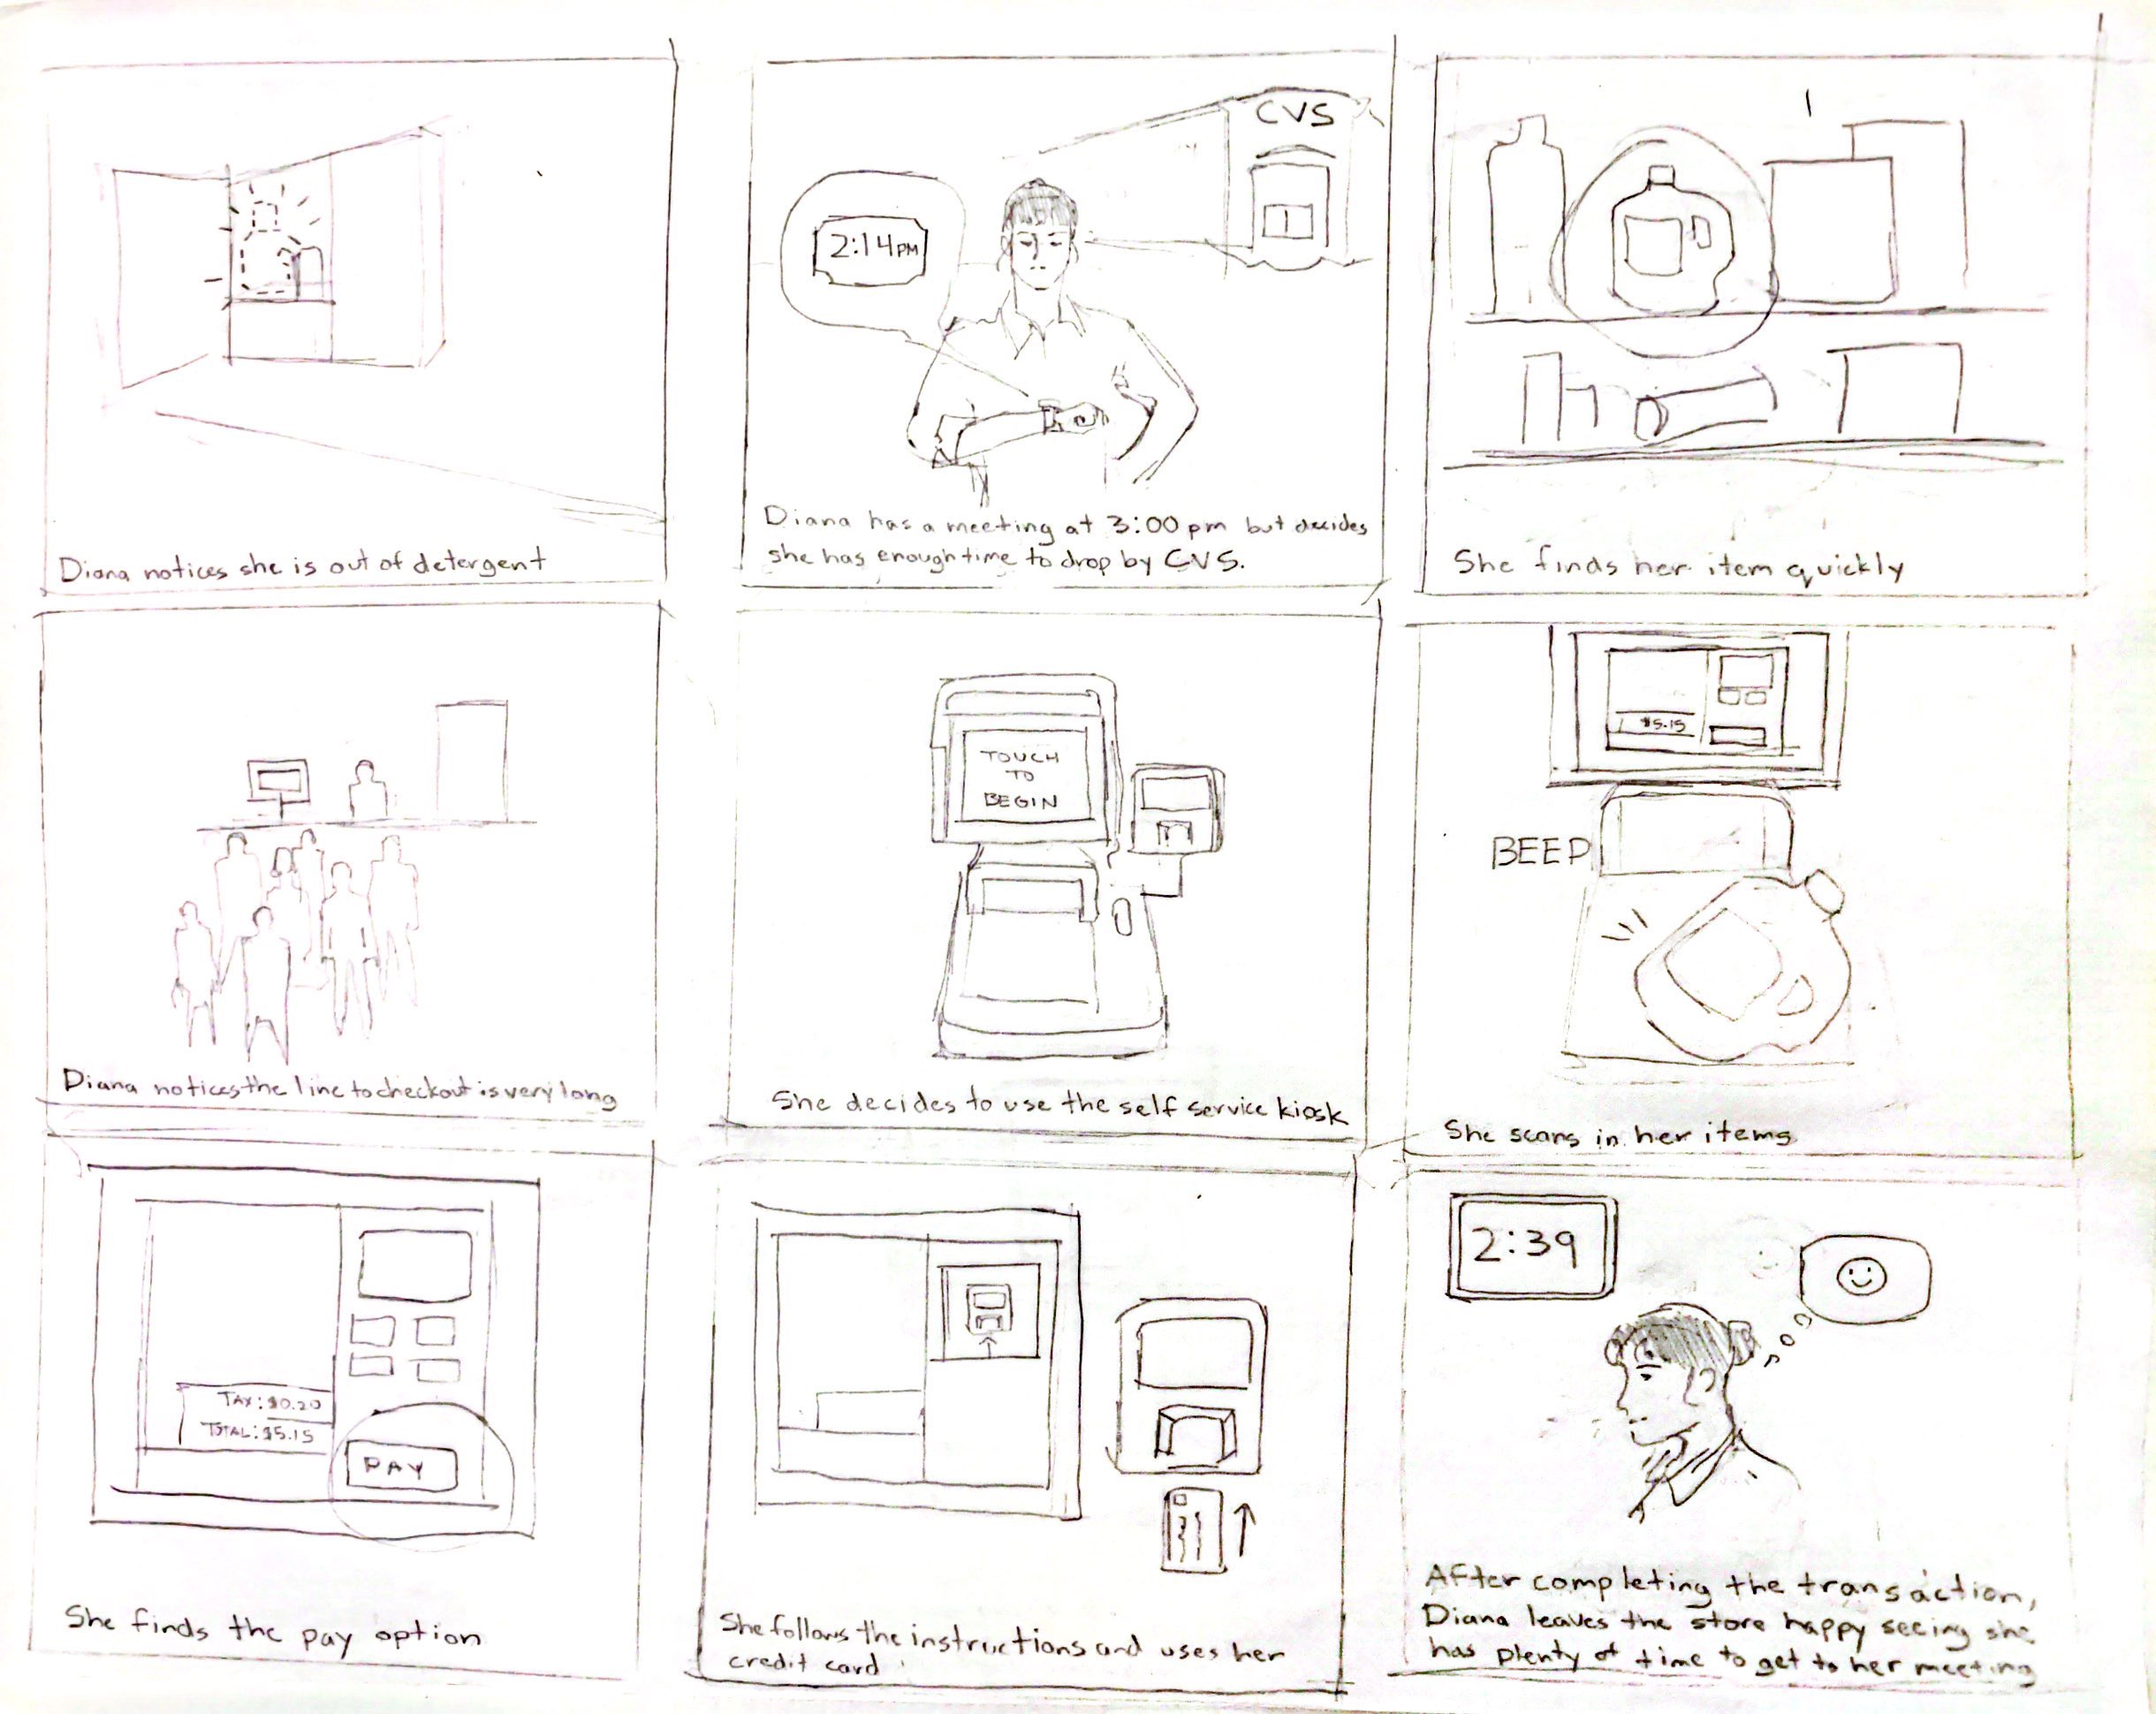 Diana notices she is out of detergent
CVS
2:14PM
Diana has a meeting at 3:00 pm but decides
she has enough time to drop by CVS.
She finds her item quickly
Diana notices the line to checkout is very long
TOUCH
TO
BEGIN
She decides to use the self service kiosk
$5.15
BEEP
She scans in her items
TAX: $0.20
TOTAL: $5.15
PAY
She finds the pay option
She follows the instructions and uses her
credit card
2:39
After completing the transaction,
Diana leaves the store happy seeing she
has plenty of time to get to her meeting